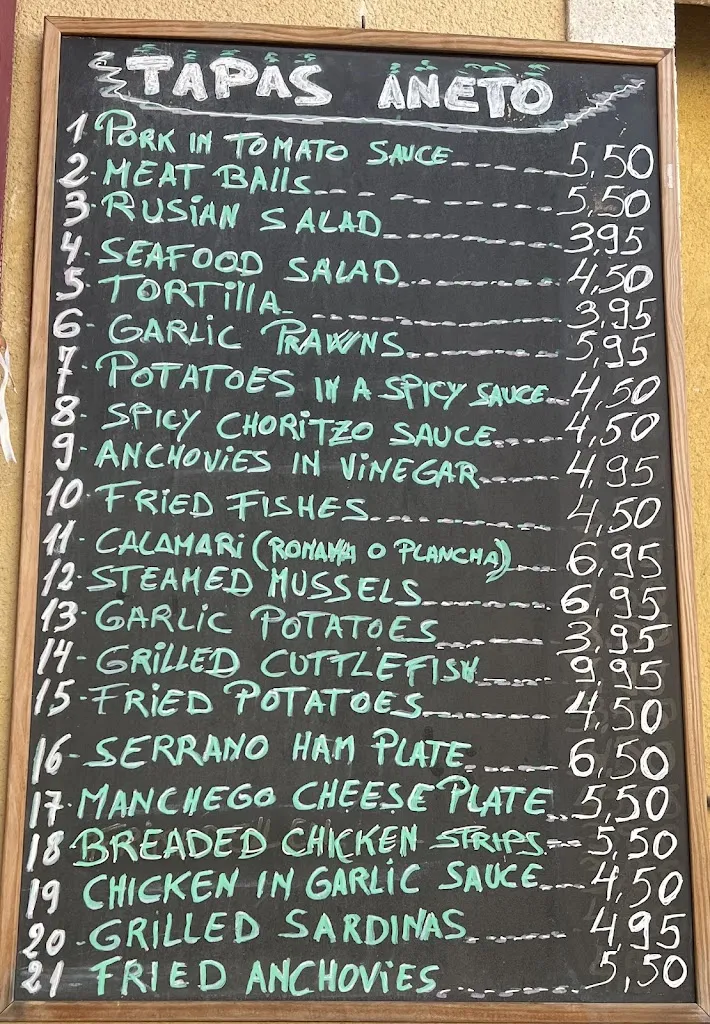 TAPAS ANETO
1 PORK IN TOMATO SAUCE 5,50
2- MEAT BAlls 5,50
3- RUSIAN SALAD 3,95
4- SEAFOOD SALAD 4,50
5- TORTIllA 3,95
6- GARLIC PRAWNS 5,95
7- POTATOES IN A SPICY SAUCE 4,50
8- SPICY CHORITZO SAUCE 4,50
9- ANCHOViES IN ViNEGAR 4,95
10- FRiED FiSHES 4,50
11- CALAMARi (ROMANA O PLANCHA) 6,95
12- STEAMED MUSSELS 6,95
13- GARLIC POTATOES 3,95
14- GRiLLED CUTTLEFISH 9,95
15- FRiED POTATOES 4,50
16- SERRANO HAM PLATE 6,50
17- MANCHEGO CHEESE PLATE 5,50
18 BREADED CHICKEN STRIPS 5,50
19 CHICKEN IN GARLIC SAUCE 4,50
20- GRILLED SARDINAS 4,95
21 FRIED ANCHOViES 5,50